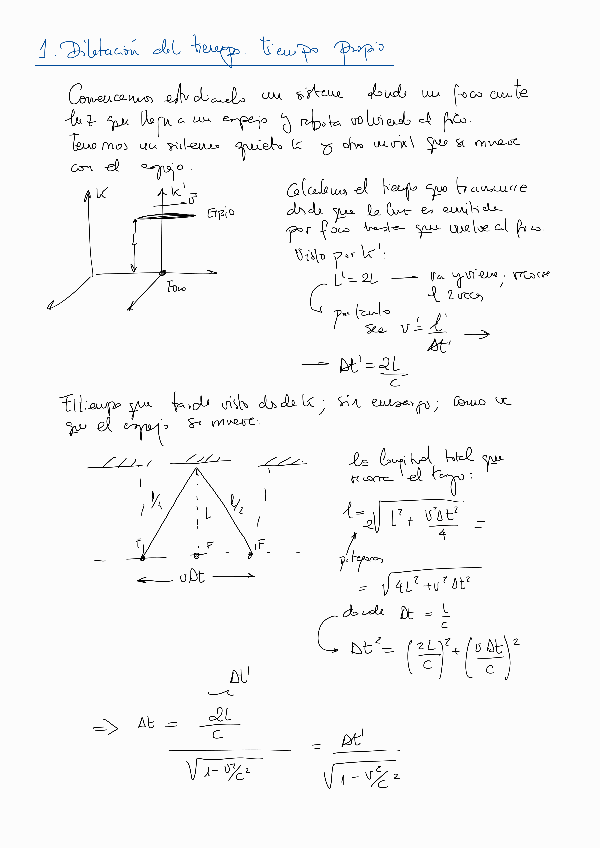 1. Dilatación del tiempo. tiempo propio
Comenzamos estudiando un sistema donde un foco emite
luz que llega a un espejo y rebota volviendo al foco.
Tenemos un sistema quieto K y otro móvil que se mueve
con el espejo.
K
K'
v
Espejo
L
Foco
Calculemos el tiempo que transcurre
desde que la luz es emitida
por foco hasta que vuelve al foco
Visto por K':
L' = 2L — va y viene, recorre
l 2 veces
por tanto
sea v' = l'/Δt' →
— Δt' = 2L/c
El tiempo que tarda visto desde K; sin embargo; como ve
que el espejo se mueve:
l/2 L l/2
F F F
vΔt
la longitud total que
recorre el rayo:
l = 2√(L² + v²Δt²/4) =
pitágoras
= √(4L² + v²Δt²)
donde Δt = l/c
Δt² = (2L/c)² + (vΔt/c)²
Δt'
⇒ Δt = (2L/c)/√(1 - v²/c²) = Δt'/√(1 - v²/c²)